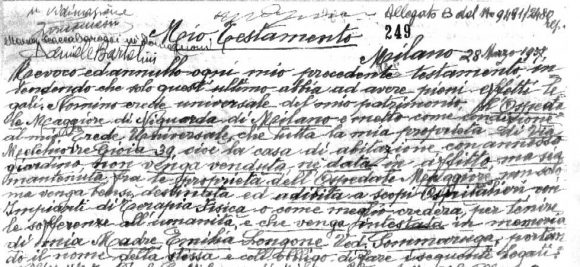 Allegato B del No 9491/2480 rep.
249
Mio Testamento
Milano 28 Marzo 1937
Revoco ed annullo ogni mio precedente testamento in
tendendo che solo quest'ultimo abbia ad avere pieni effetti le
gali. Nomino erede universale del mio patrimonio l'Ospeda
le Maggiore di Niguarda di Milano e metto come condizione
al mio Erede Universale, che tutta la mia proprietà di Via
Melchiorre Gioia 39, cioè la casa di abitazione con annesso
giardino non venga venduta, nè data in affitto ma sia
mantenuta fra le proprietà dell'Ospedale Maggiore non solo
ma venga bensì destinata ed adibita a scopi Ospitalieri con
Impianti di Terapia Fisica o come meglio crederà per lenire
le sofferenze all'umanità, e che venga intestata in memoria
di mia Madre Emilia Longone Ved. Sommaruga, portan
do il nome della stessa e coll'obbligo di fare i seguenti Legati: